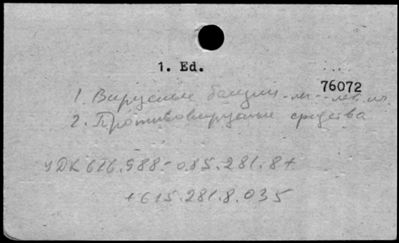 1. Ed.
76072
1. Вирусные болезни - м - лечение
2. Противовирусные средства
УДК 616.988-085.281.8+
+615.281.8.035